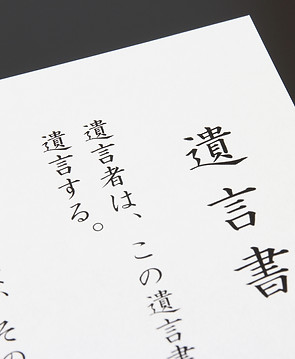 遺言書
遺言者は、この遺言書
遺言する。
、その